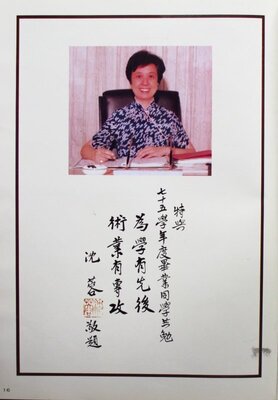 特與
七十五學年度畢業同學共勉
為學有先後
術業有專攻
沈蓉敬題
16